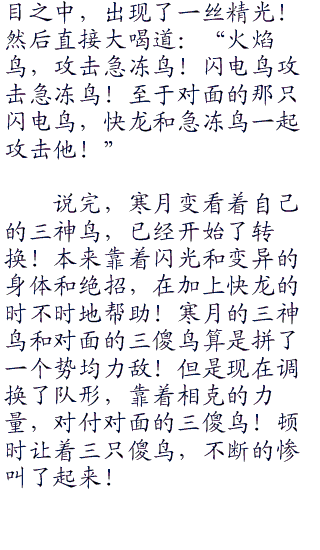 目之中，出现了一丝精光！
然后直接大喝道：“火焰
鸟，攻击急冻鸟！闪电鸟攻
击急冻鸟！至于对面的那只
闪电鸟，快龙和急冻鸟一起
攻击他！”
说完，寒月变看着自己
的三神鸟，已经开始了转
换！本来靠着闪光和变异的
身体和绝招，在加上快龙的
时不时地帮助！寒月的三神
鸟和对面的三傻鸟算是拼了
一个势均力敌！但是现在调
换了队形，靠着相克的力
量，对付对面的三傻鸟！顿
时让着三只傻鸟，不断的惨
叫了起来！